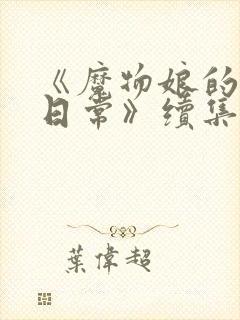 《魔物娘的
日常》續集
葉偉超